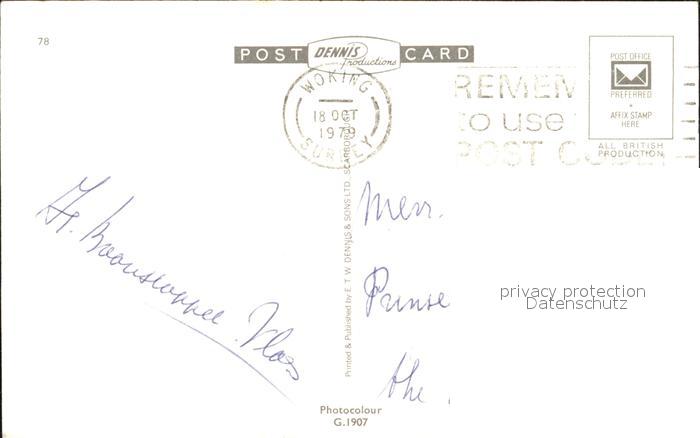 78
POST DENNIS Productions CARD
WOKING
18 OCT
1979
SURREY
REMEM
to use
POST CODE
POST OFFICE
PREFERRED
AFFIX STAMP
HERE
ALL BRITISH
PRODUCTION
Printed & Published by E. T. W. DENNIS & SONS LTD., SCARBOROUGH
Mevr.
Prinse
privacy protection
Datenschutz
Photocolour
G.1907